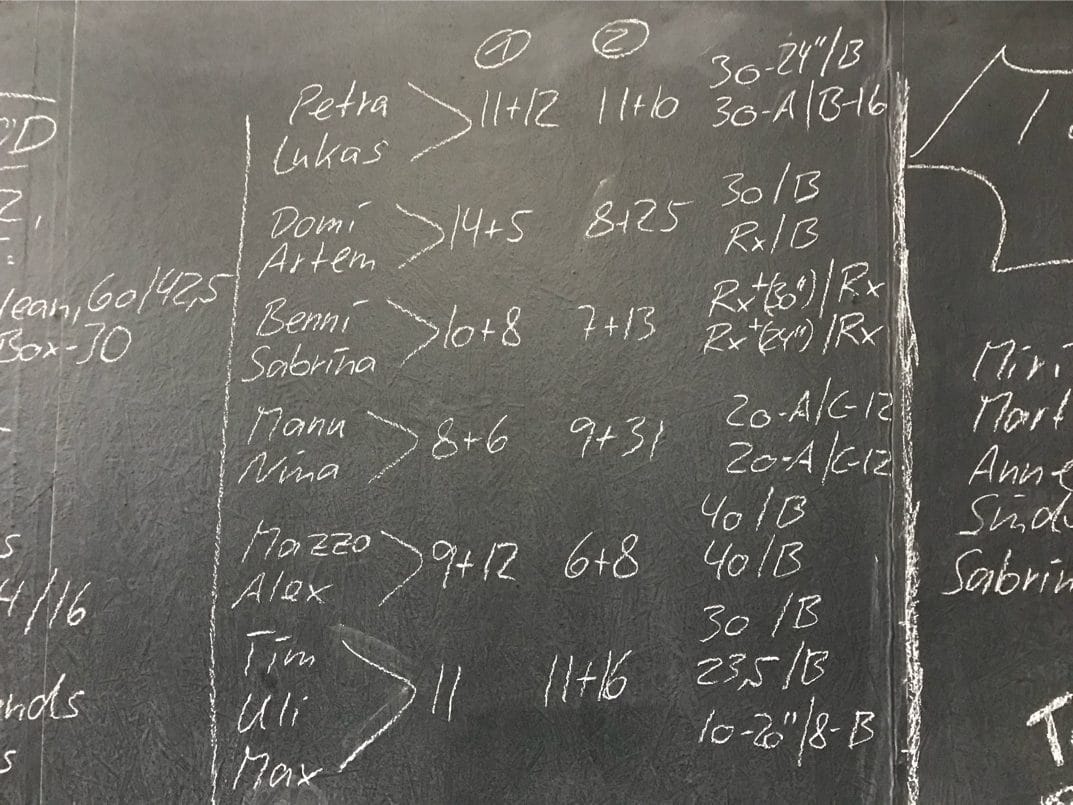 ① ②
30-24"/B
Petra 11+12 11+10 30-A/B-16
Lukas
30/B
Domi 14+5 8+25 Rx/B
Artem
Rx+(30")/Rx
Benni 10+8 7+13 Rx+(24")/Rx
Sabrina
20-A/C-12
Manu 8+6 9+31 20-A/C-12
Nina
40/B
Mazzo 9+12 6+8 40/B
Alex
30/B
Tim 11 11+16 23,5/B
Uli 10-20"/8-B
Max
lean, 60/42,5
Box-30
4/16
Miri
Mart
Anne
Sindu
Sabrin